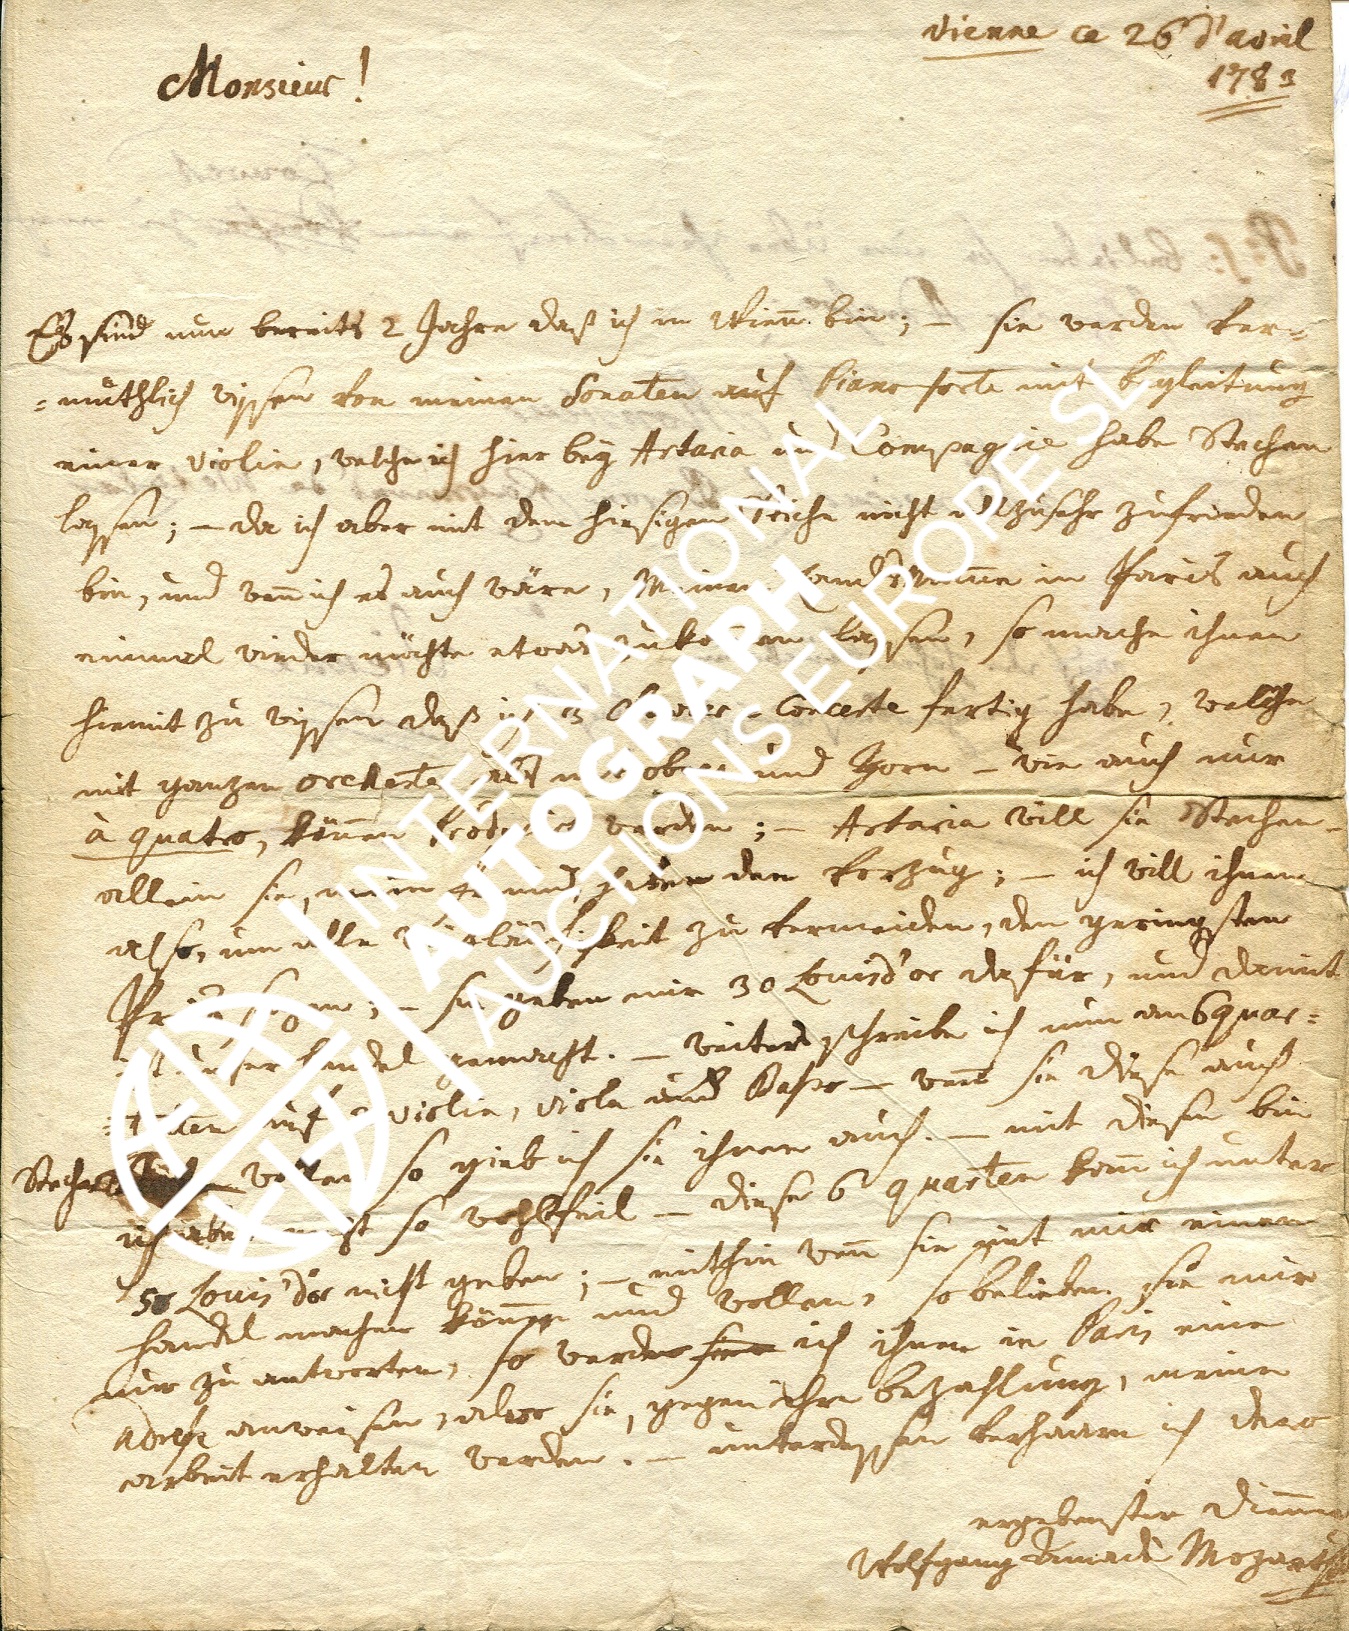 Vienne ce 26 d'avril
1783
Monsieur!
Es sind nun bereits 2 Jahre daß ich in Wienn bin; – sie werden ver=
=muthlich wissen von meinen Sonaten auf Piano forte mit begleitung
einer Violin, welche ich hier bey Artaria und Compagnie habe Stechen
lassen; – da ich aber mit dem hiesigen Stiche nicht allzusehr zufrieden
bin, und wenn ich es auch wäre, Meinen Landsmann in Paris auch
einmal wieder möchte etwas zukommen lassen, so mache ihnen
hiemit zu wissen daß ich 3 Clavier-Concerte fertig habe, welche
mit ganzen orchestre, als mit oboen und Horn – wie auch nur
à quatro, können producirt werden; – Artaria will sie Stechen.
allein sie, mein freund, haben den Vorzug; – ich will ihnen
also, um alle Weitläufigkeit zu vermeiden, den geringsten
Preis sagen; – sie geben mir 30 Louis d'or dafür, und damit
ist unser handel gemacht. – weiters schreibe ich nun an 6 quar=
=tetten auf 2 violin, viola und Basso – wenn sie diese auch
Stechen wollen so gieb ich sie ihnen auch. – mit diesen bin
ich aber nicht so wohlfeil – diese 6 quarteten kann ich unter
50 Louis d'or nicht geben; – mithin wenn sie mit mir einen
handel machen können und wollen, so belieben sie mir
nur zu antworten, so werde ich ihnen in Paris eine
adresse anweisen, alwo sie, gegen ihre bezahlung, meine
arbeit erhalten werden. – unterdessen verharre ich dero
ergebenster Diener
Wolfgang Amadè Mozart
INTERNATIONAL
AUTOGRAPH
AUCTIONS EUROPE SL